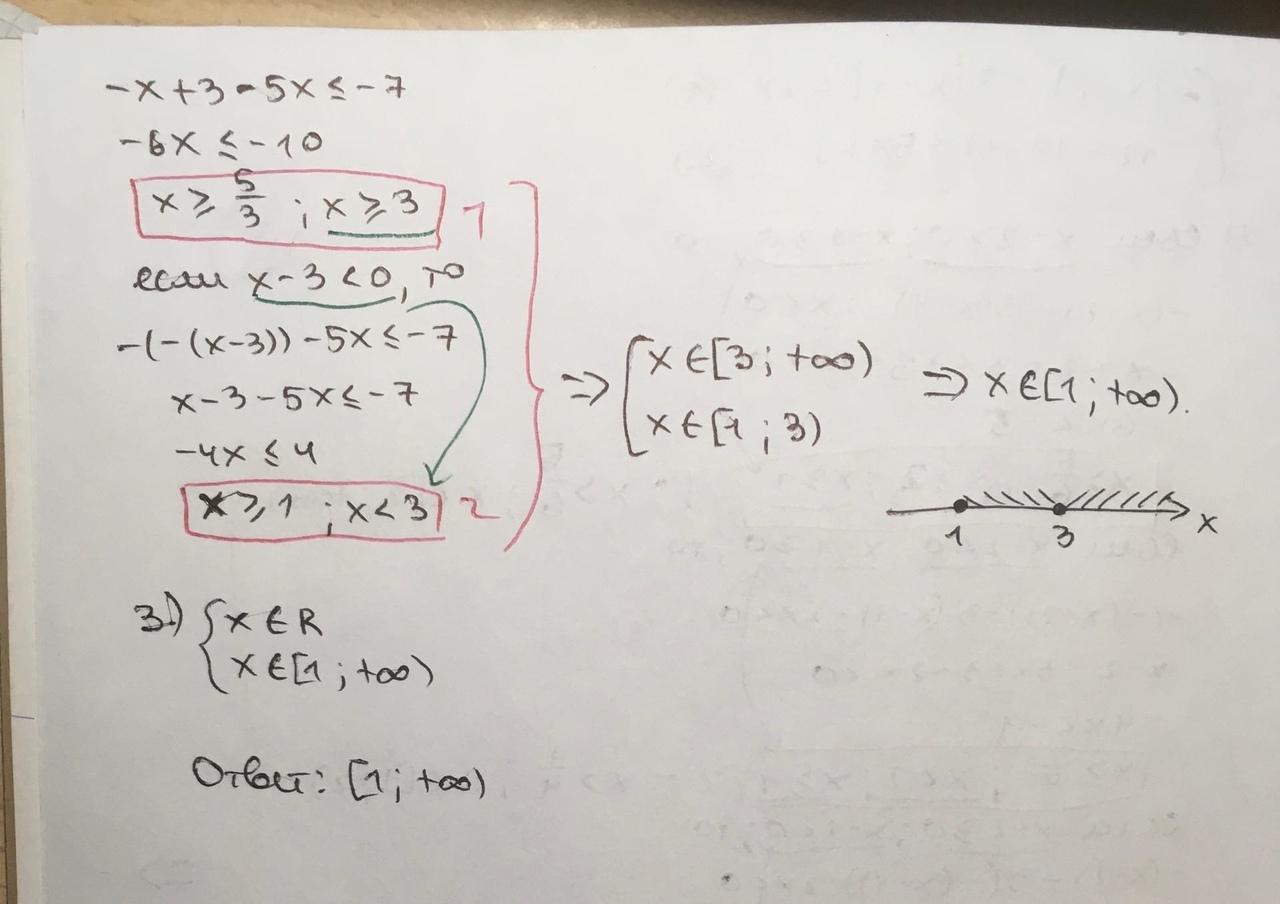 -x+3-5x≤-7
-6x≤-10
x≥5/3 ; x≥3 1
если x-3<0, то
-(-(x-3))-5x≤-7
x-3-5x≤-7
-4x≤4
x≥1 ; x<3 2
=> [x∈[3;+∞)
x∈[1;3)
=> x∈[1;+∞).
1 3 x
3.) {x∈R
x∈[1;+∞)
Ответ: [1;+∞)